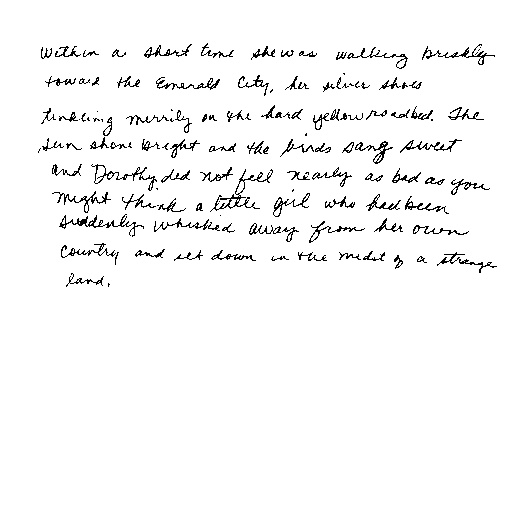 Within a short time she was walking briskly
toward the Emerald City, her silver shoes
tinkling merrily on the hard yellow roadbed. The
sun shone bright and the birds sang sweet
and Dorothy did not feel nearly as bad as you
might think a little girl who had been
suddenly whisked away from her own
country and set down in the midst of a strange
land.